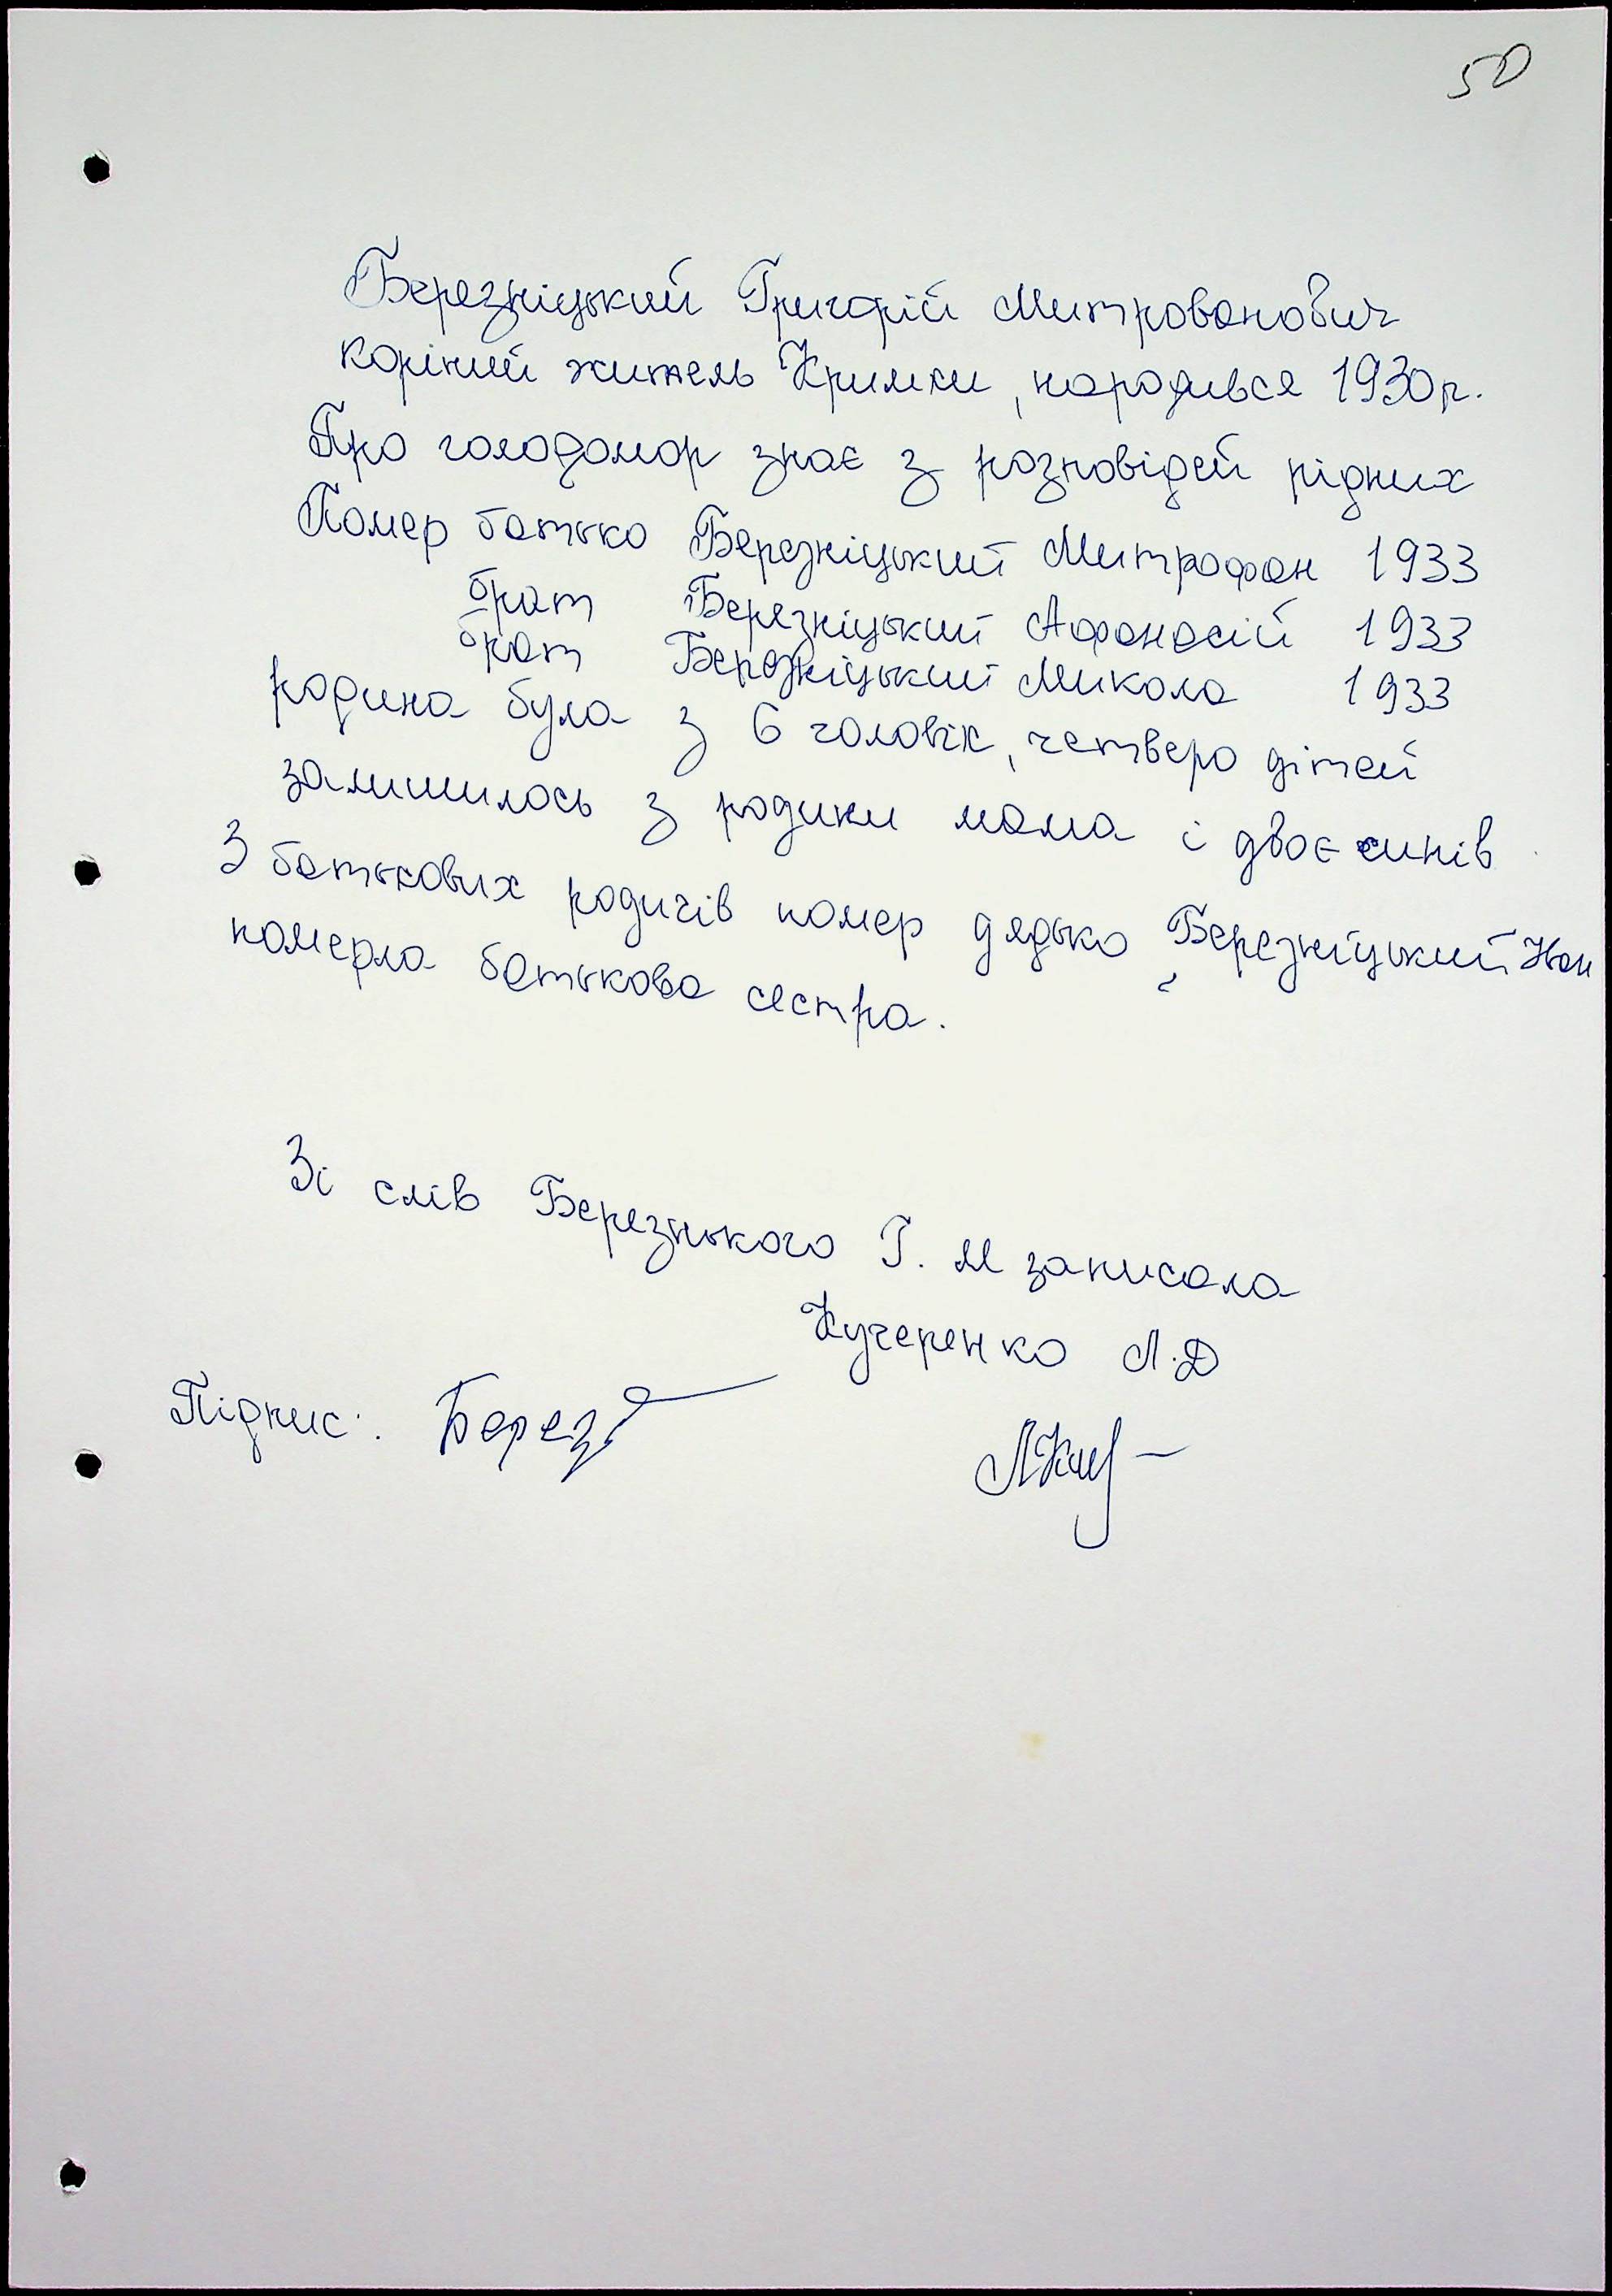 50
Березніцький Григорій Митрованович
корінний житель Кримки, народився 1930р.
Про голодомор знає з розповідей рідних
Помер батько Березніцький Митрофан 1933
брат Березніцький Афанасій 1933
брат Березніцький Микола 1933
родина була з 6 чоловік, четверо дітей
залишилось з родини мама і двоє синів
З батькових родичів помер дядько Березніцький Іван
померла батькова сестра.
Зі слів Березнького Г. М записала
Кучеренко Л.Д
Підпис: Берез